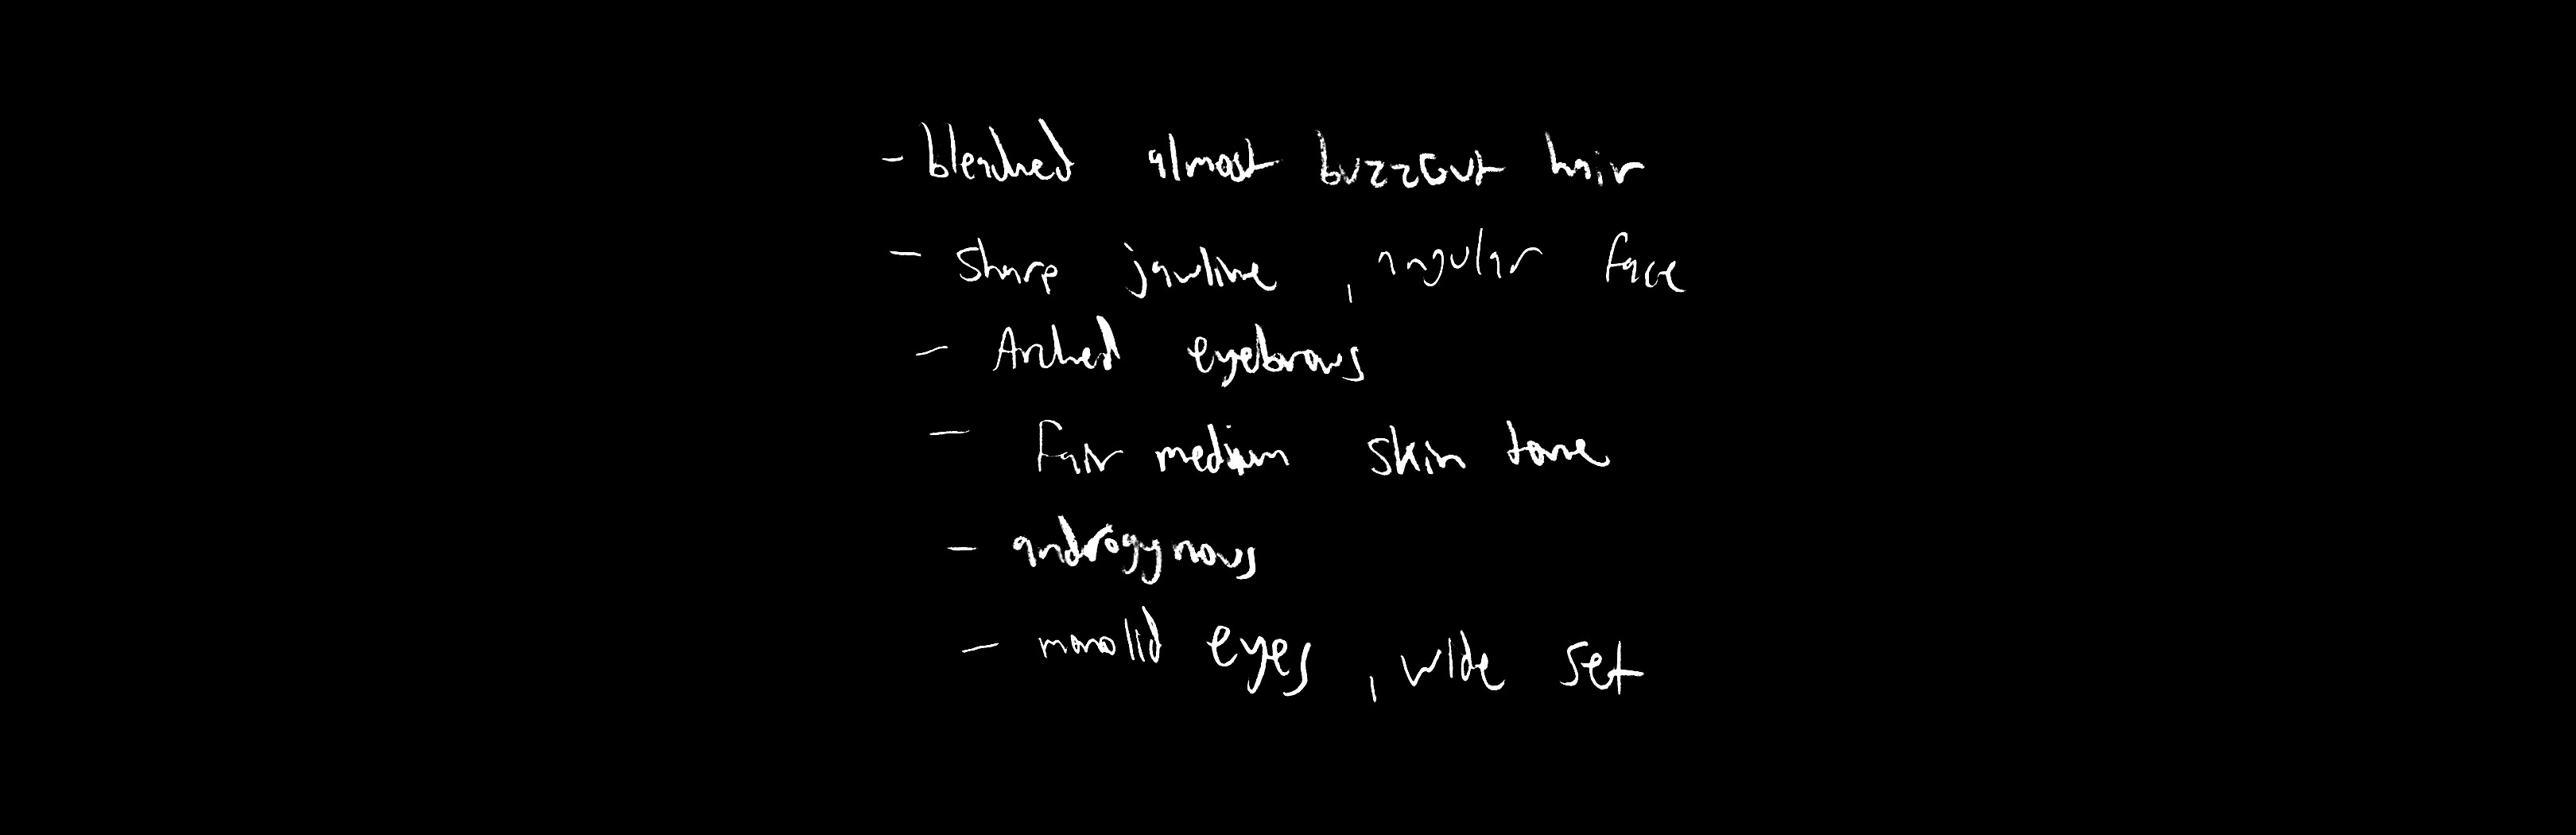 - bleached almost buzzcut hair
- sharp jawline, angular face
- Arched eyebrows
- Fair medium skin tone
- androgynous
- monolid eyes, wide set